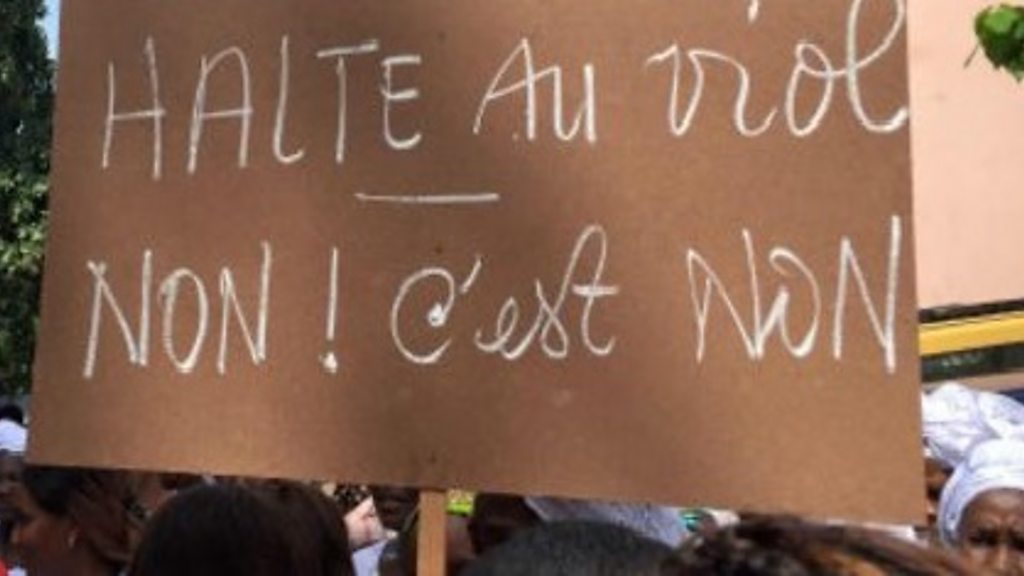 HALTE AU viol
NON ! c'est NON